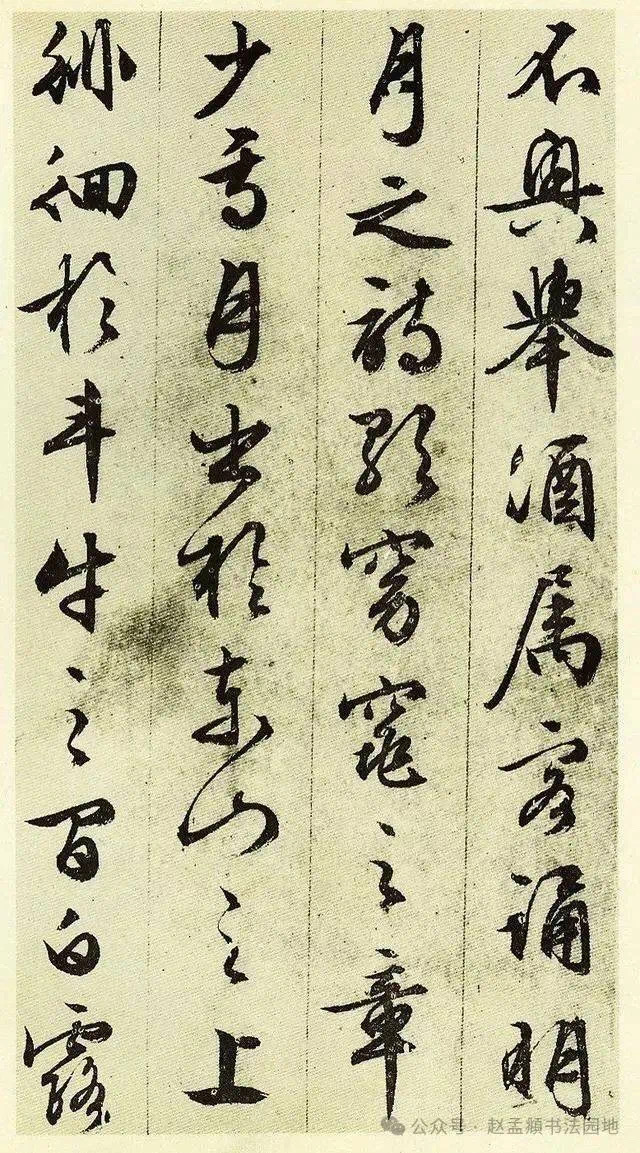 不興舉酒属客誦明
月之詩歌窈窕之章
少焉月出於東山之上
徘徊於斗牛之間白露
公众号·赵孟頫书法园地